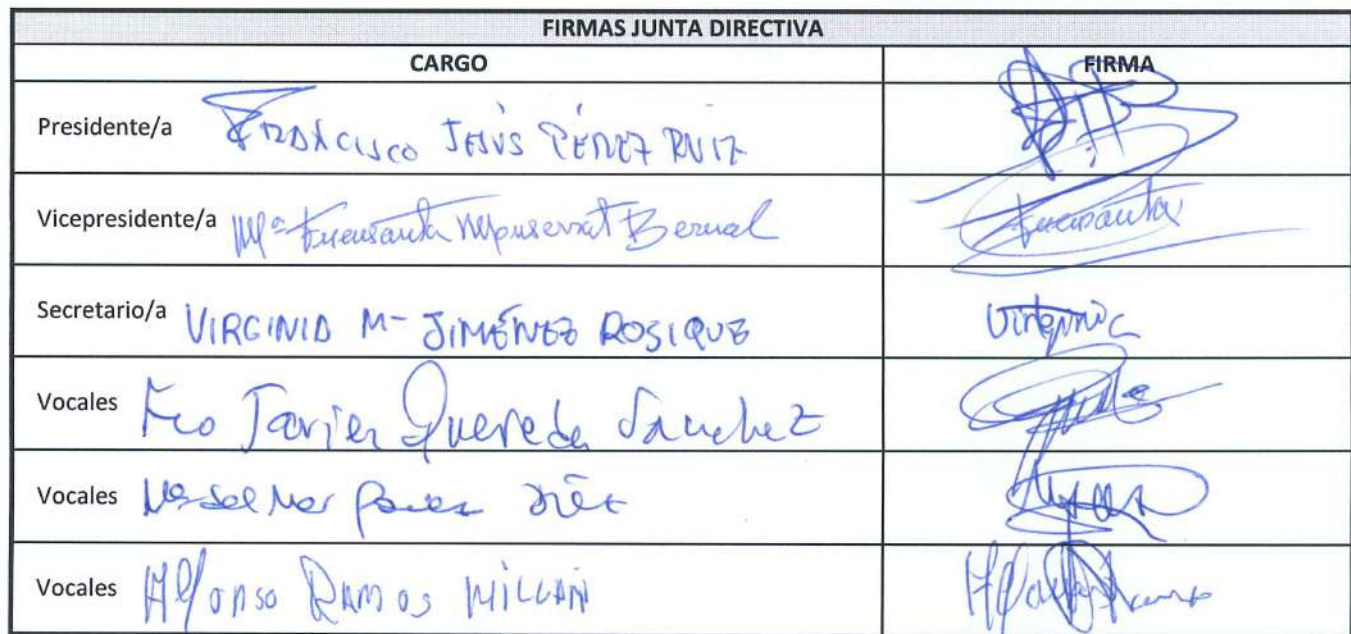 FIRMAS JUNTA DIRECTIVA
CARGO FIRMA
Presidente/a FRANCISCO JESÚS PÉREZ RUIZ
Vicepresidente/a Mª Fuensanta Monserrat Bernal Fuensanta
Secretario/a VIRGINIA Mª JIMÉNEZ ROSIQUE Virginia
Vocales Fco Javier Quereda Sanchez
Vocales
Vocales Alfonso RAMOS MILLAN